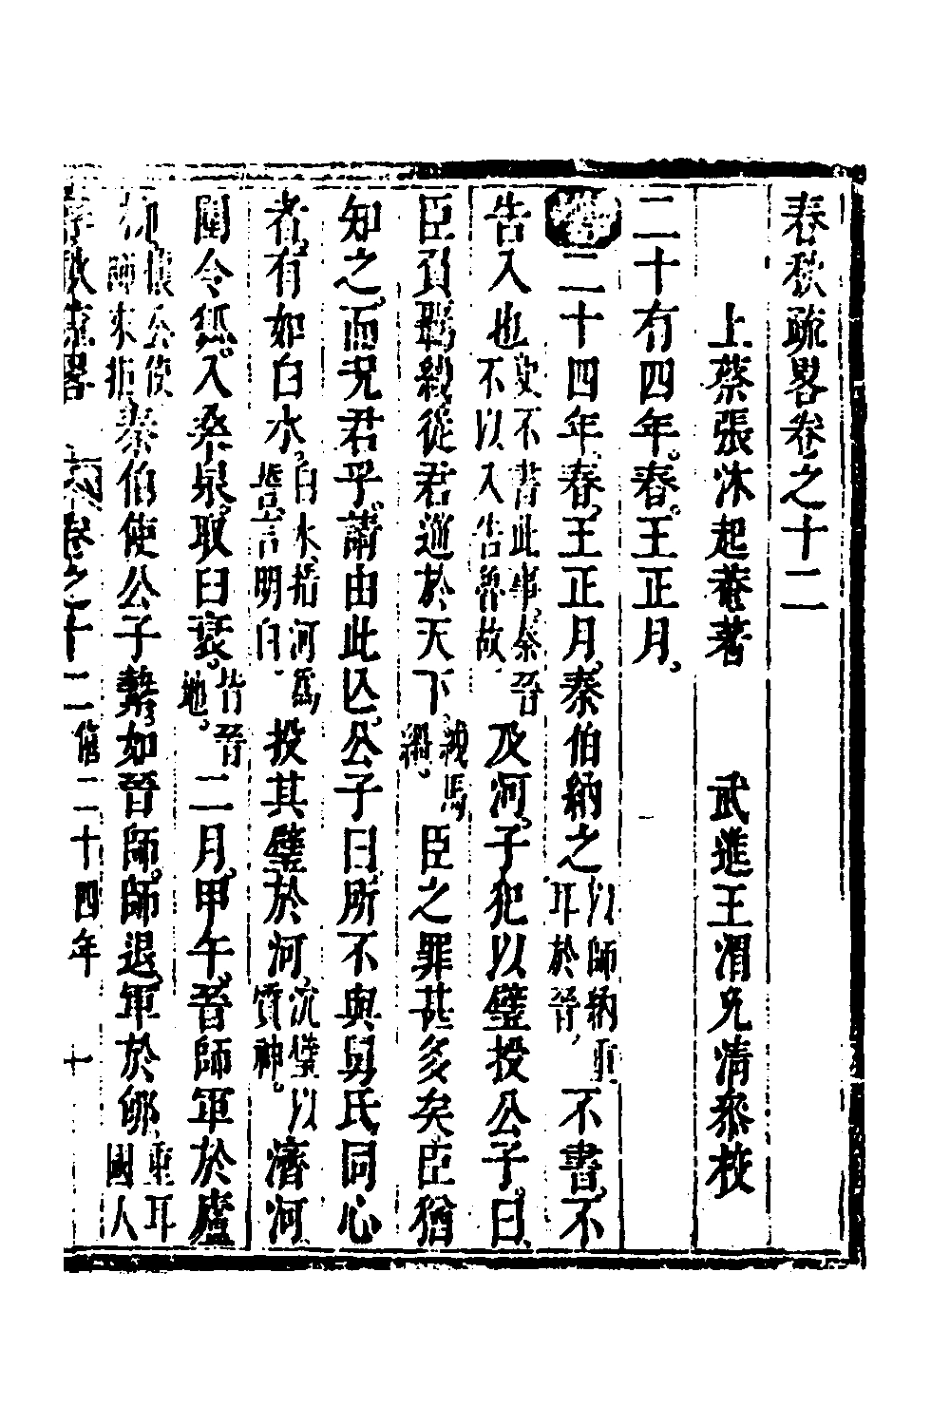 春秋疏畧卷之十二
上蔡張沐起菴著　武進王渭允清叅校
二十有四年。春。王正月。
二十四年。春。王正月。秦伯納之以師納重耳於晉、不書。不
告入也史不書此事、秦晉不以入告魯故、及河。子犯以璧投公子。曰。
臣負羈紲從君巡於天下紲馬韁。臣之罪甚多矣臣猶
知之。而況君乎。請由此亾。公子曰所不與舅氏同心
者。有如白水。白水、指河爲誓、言明白、投其璧於河。沉璧以質神。濟河
圍令狐。入桑泉。取臼衰。皆晉地。二月。甲午。晉師軍於廬
柳。懷公使師來拒秦伯使公子縶如晉師。師退。軍於郇。重耳國人
春秋疏畧　卷之十二僖二十四年　十